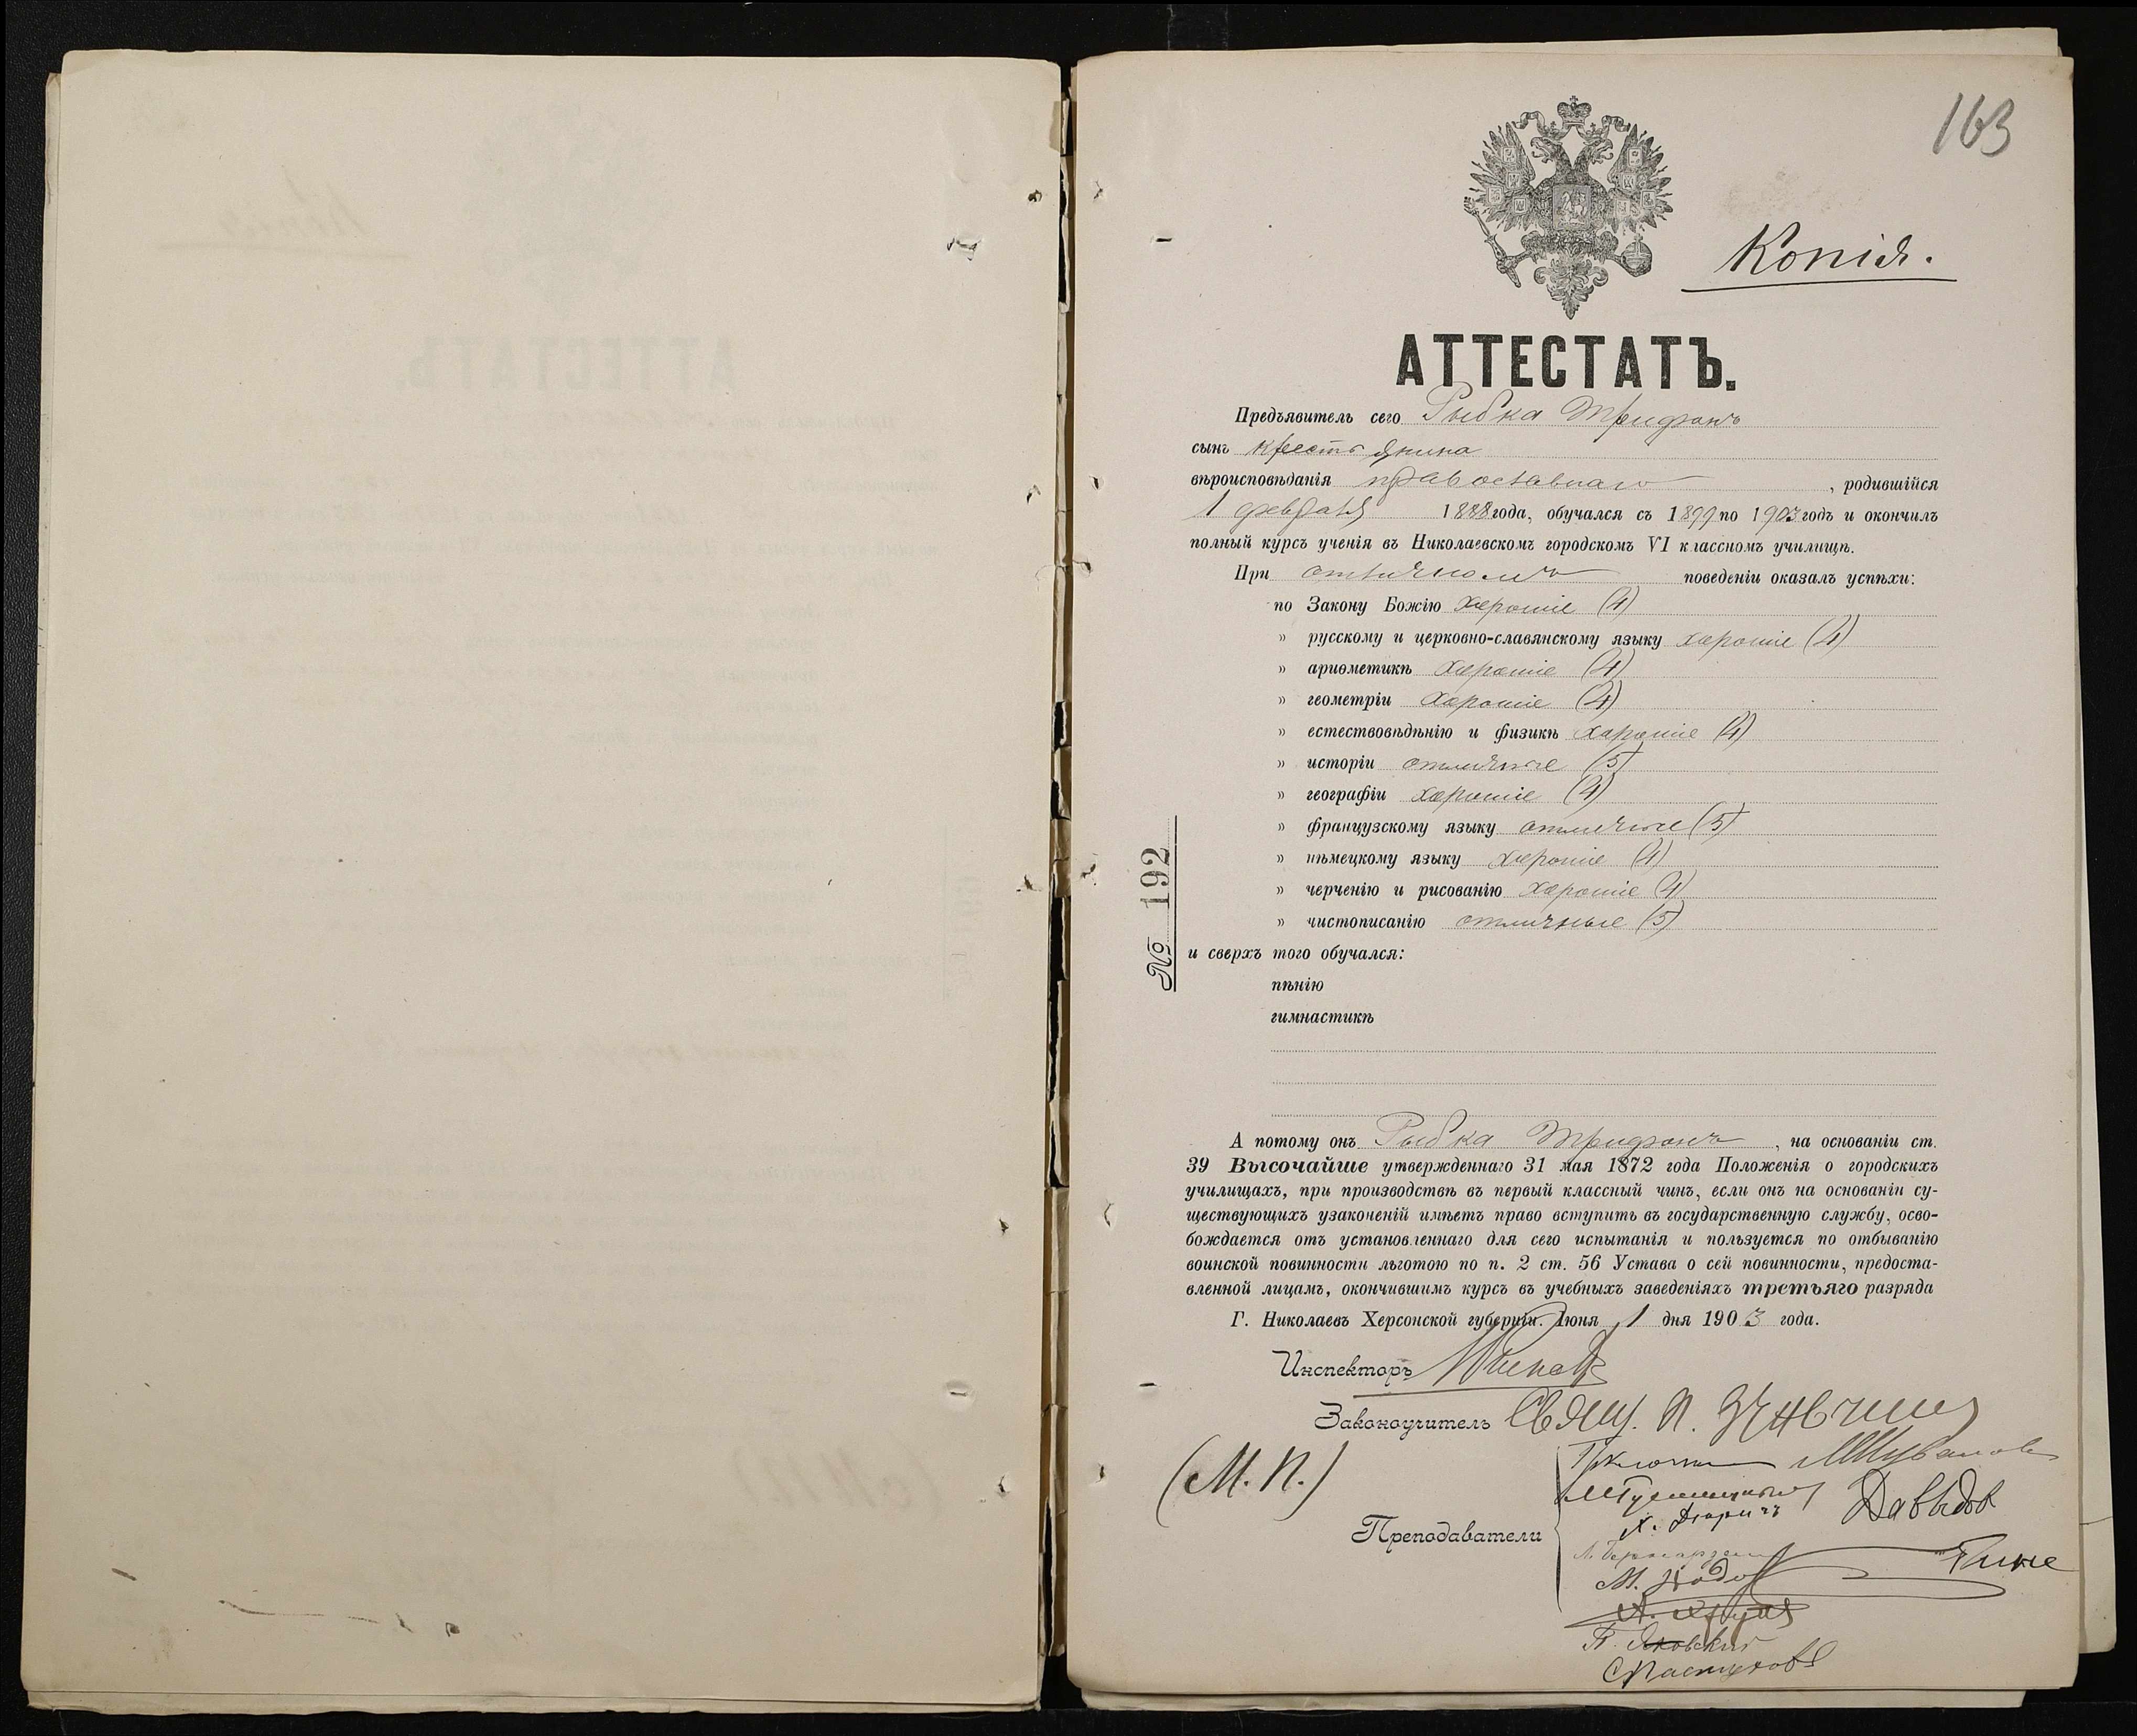 163
Копія.
АТТЕСТАТЪ.
Предъявитель сего Рыбка Трифонъ
сынъ крестьянина
вѣроисповѣданія православнаго, родившійся
1 февраля 1888 года, обучался съ 1899 по 1903 годъ и окончилъ
полный курсъ ученія въ Николаевскомъ городскомъ VI классномъ училищѣ.
При отличномъ поведеніи оказалъ успѣхи:
по Закону Божію хорошіе (4)
» русскому и церковно-славянскому языку хорошіе (4)
» ариѳметикѣ хорошіе (4)
» геометріи хорошіе (4)
» естествовѣдѣнію и физикѣ хорошіе (4)
» исторіи отличные (5)
» географіи хорошіе (4)
» французскому языку отличные (5)
» нѣмецкому языку хорошіе (4)
» черченію и рисованію хорошіе (4)
» чистописанію отличные (5)
№ 192
и сверхъ того обучался:
пѣнію
гимнастикѣ
А потому онъ Рыбка Трифонъ, на основаніи ст.
39 Высочайше утвержденнаго 31 мая 1872 года Положенія о городскихъ
училищахъ, при производствѣ въ первый классный чинъ, если онъ на основаніи су-
ществующихъ узаконеній имѣетъ право вступить въ государственную службу, осво-
бождается отъ установленнаго для сего испытанія и пользуется по отбыванію
воинской повинности льготою по п. 2 ст. 56 Устава о сей повинности, предоста-
вленной лицамъ, окончившимъ курсъ въ учебныхъ заведеніяхъ третьяго разряда
Г. Николаевъ Херсонской губерніи. Іюня 1 дня 1903 года.
Инспекторъ
Законоучитель Свящ. П.
(М. П.)
Преподаватели
Давыдов